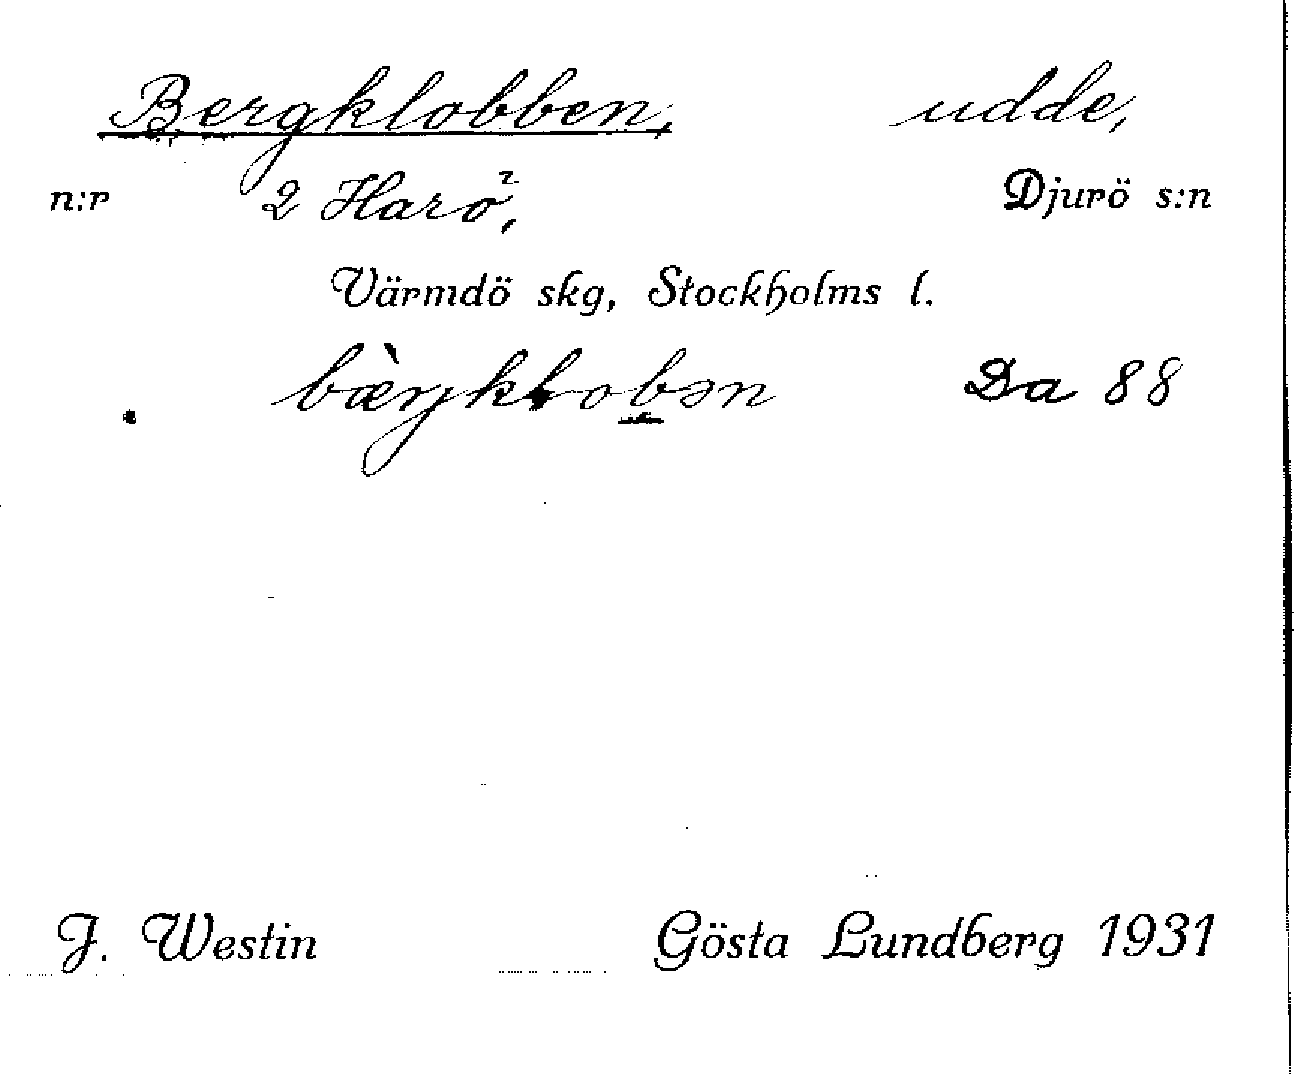 Bergklobben, udde,
n:r 2 Harö, Djurö s:n
Värmdö skg, Stockholms l.
Da 88
J. Westin Gösta Lundberg 1931